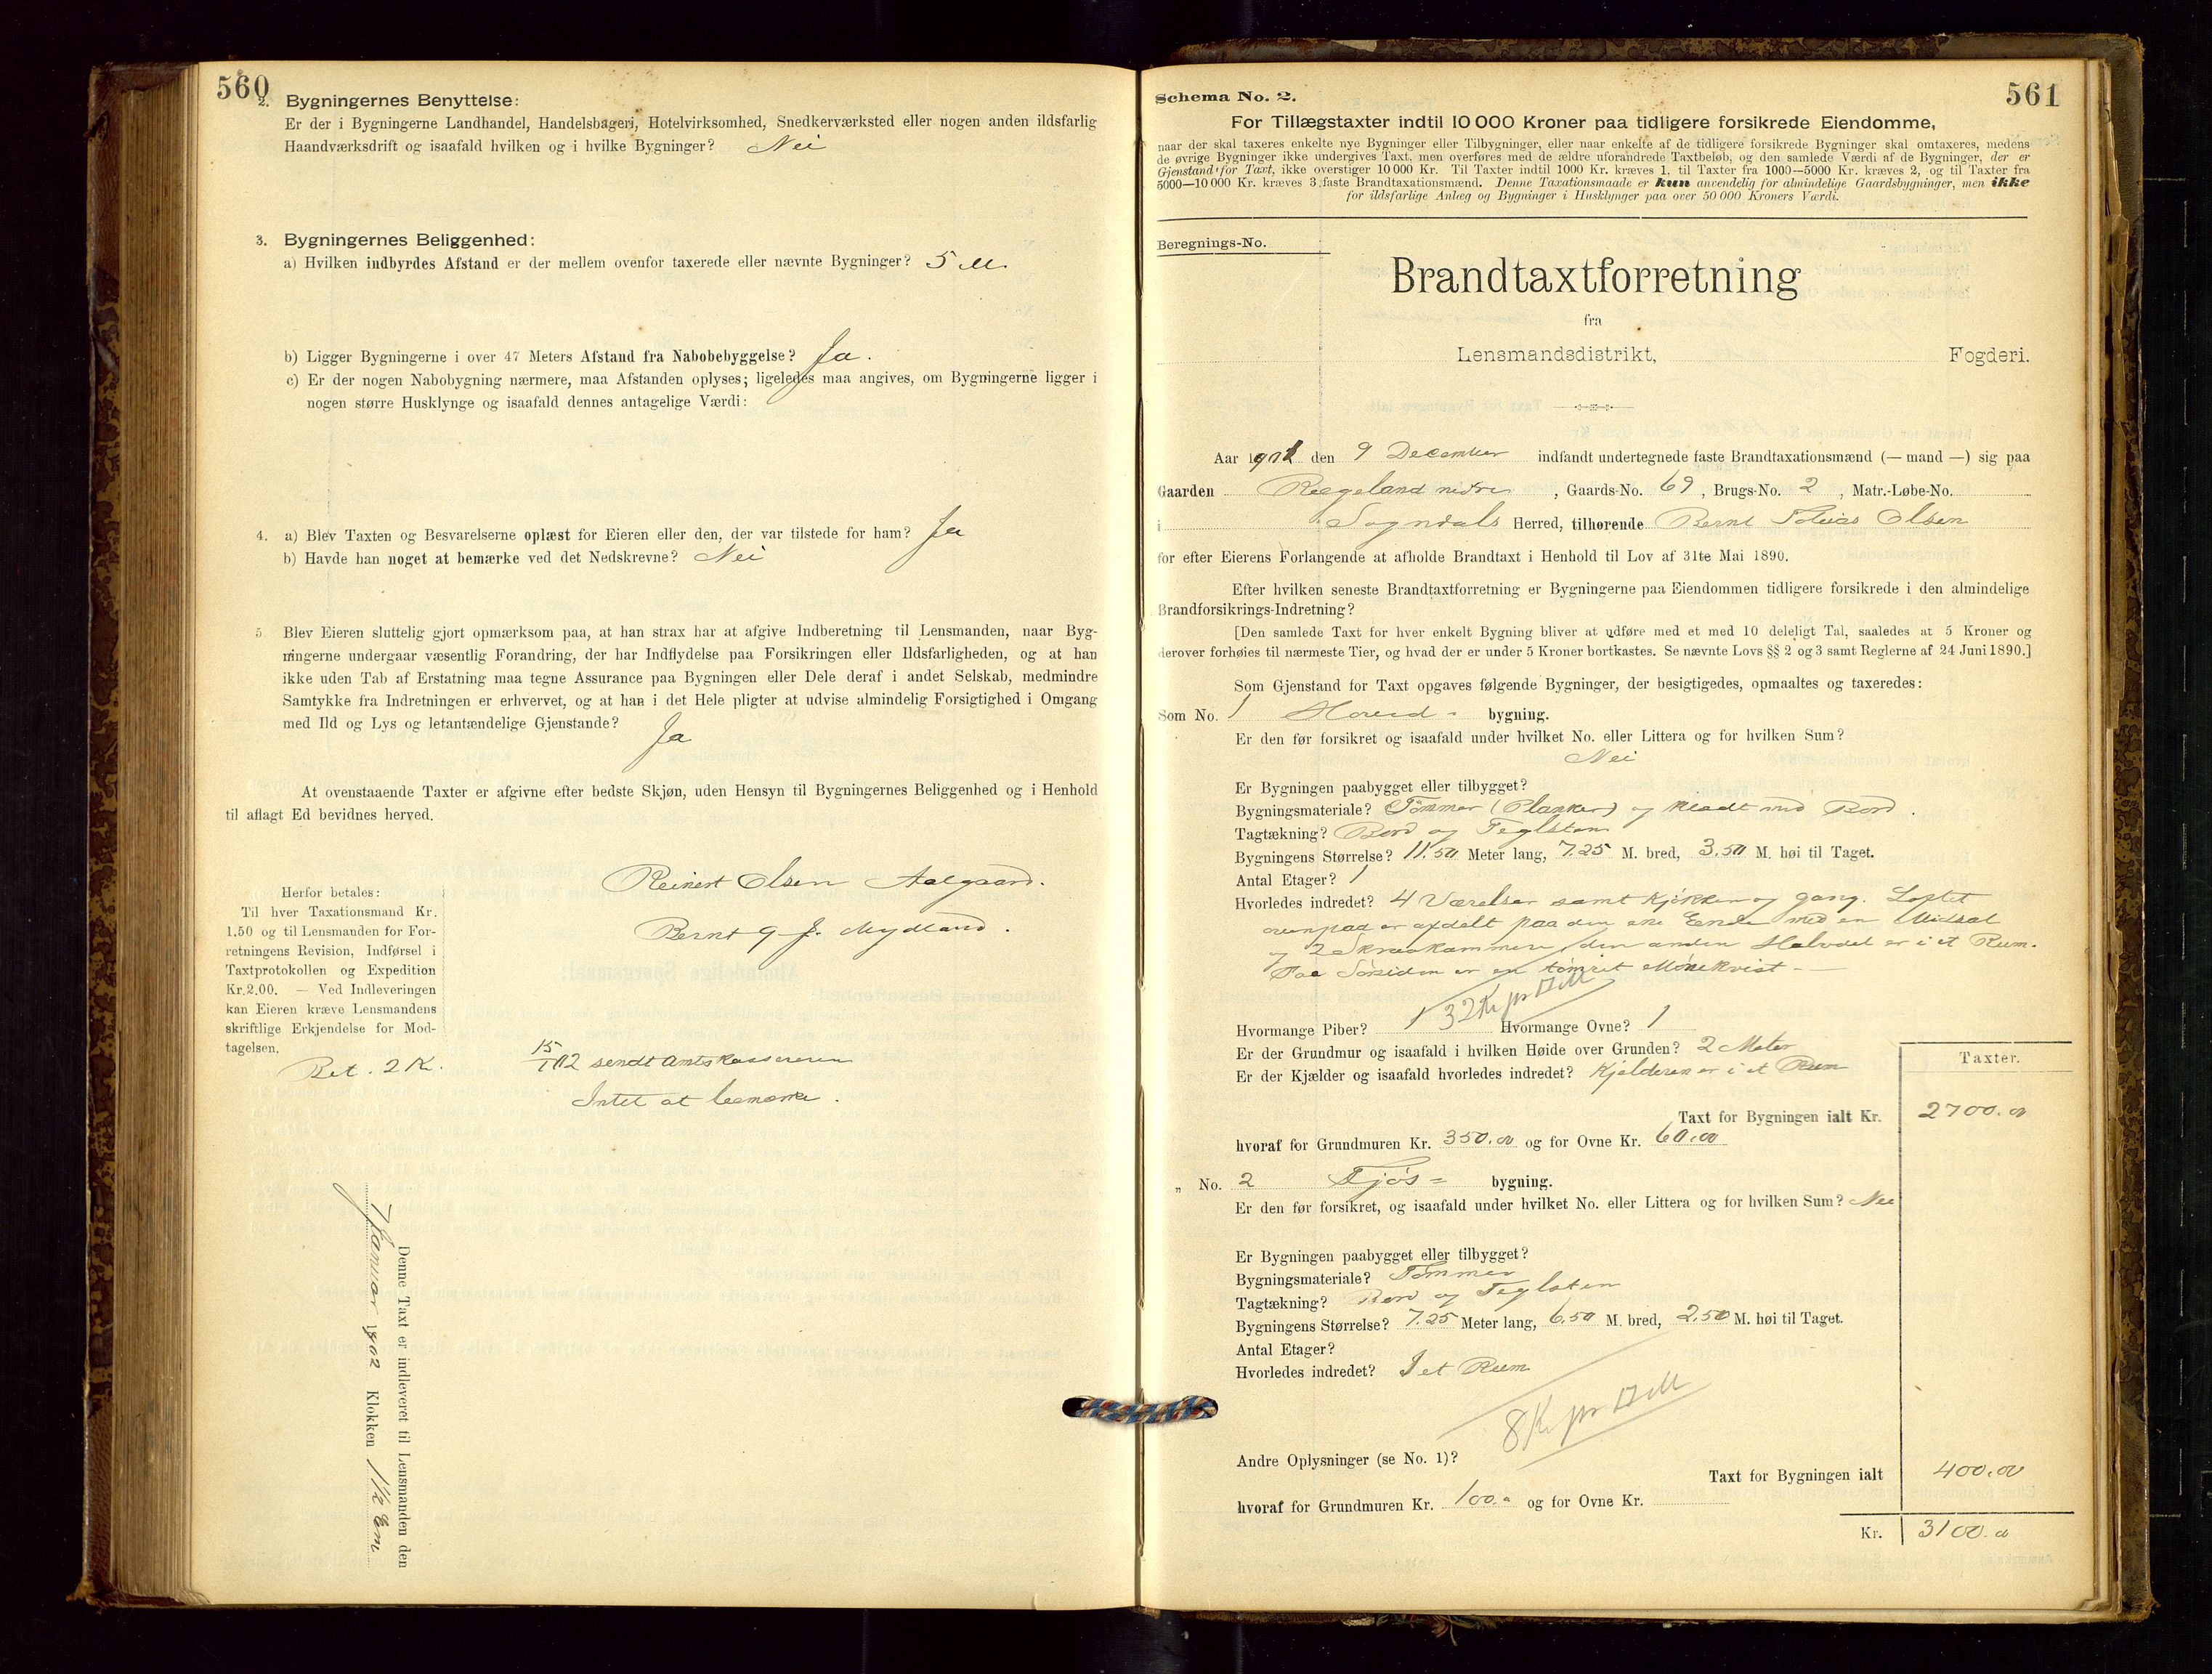 560
2. Bygningernes Benyttelse:
Er der i Bygningerne Landhandel, Handelsbageri, Hotelvirksomhed, Snedkerværksted eller nogen anden ildsfarlig
Haandværksdrift og isaafald hvilken og i hvilke Bygninger? Nei
3. Bygningernes Beliggenhed:
a) Hvilken indbyrdes Afstand er der mellem ovenfor taxerede eller nævnte Bygninger? 5 M
b) Ligger Bygningerne i over 47 Meters Afstand fra Nabobebyggelse? Ja.
c) Er der nogen Nabobygning nærmere, maa Afstanden oplyses; ligeledes maa angives, om Bygningerne ligger i
nogen større Husklynge og isaafald dennes antagelige Værdi:
4. a) Blev Taxten og Besvarelserne oplæst for Eieren eller den, der var tilstede for ham? Ja
b) Havde han noget at bemærke ved det Nedskrevne? Nei
5. Blev Eieren sluttelig gjort opmærksom paa, at han strax har at afgive Indberetning til Lensmanden, naar Byg-
ningerne undergaar væsentlig Forandring, der har Indflydelse paa Forsikringen eller Ildsfarligheden, og at han
ikke uden Tab af Erstatning maa tegne Assurance paa Bygningen eller Dele deraf i andet Selskab, medmindre
Samtykke fra Indretningen er erhvervet, og at han i det Hele pligter at udvise almindelig Forsigtighed i Omgang
med Ild og Lys og letantændelige Gjenstande?
Ja
At ovenstaaende Taxter er afgivne efter bedste Skjøn, uden Hensyn til Bygningernes Beliggenhed og i Henhold
til aflagt Ed bevidnes herved.
Reinert Olsen Aalgaard.
Bernt G J. Mydland.
Herfor betales:
Til hver Taxationsmand Kr.
1,50 og til Lensmanden for For-
retningens Revision, Indførsel i
Taxtprotokollen og Expedition
Kr. 2,00. — Ved Indleveringen
kan Eieren kræve Lensmandens
skriftlige Erkjendelse for Mod-
tagelsen.
Bet. 2 K.
15/1 02 sendt Amtskassereren
Intet at bemærke.
Denne Taxt er indleveret til Lensmanden den
7 Januar 1902 Klokken 1½ Em
561
Schema No. 2.
For Tillægstaxter indtil 10 000 Kroner paa tidligere forsikrede Eiendomme,
naar der skal taxeres enkelte nye Bygninger eller Tilbygninger, eller naar enkelte af de tidligere forsikrede Bygninger skal omtaxeres, medens
de øvrige Bygninger ikke undergives Taxt, men overføres med de ældre uforandrede Taxtbeløb, og den samlede Værdi af de Bygninger, der er
Gjenstand for Taxt, ikke overstiger 10 000 Kr. Til Taxter indtil 1000 Kr. kræves 1, til Taxter fra 1000—5000 Kr. kræves 2, og til Taxter fra
5000—10 000 Kr. kræves 3 faste Brandtaxationsmænd. Denne Taxationsmaade er kun anvendelig for almindelige Gaardsbygninger, men ikke
for ildsfarlige Anlæg og Bygninger i Husklynger paa over 50 000 Kroners Værdi.
Beregnings-No.
Brandtaxtforretning
fra
Lensmandsdistrikt, Fogderi.
Aar 1901 den 9 December indfandt undertegnede faste Brandtaxationsmænd (— mand —) sig paa
Gaarden Rægeland nedre, Gaards-No. 69, Brugs-No. 2, Matr.-Løbe-No.
i Sogndals Herred, tilhørende Bernt Tobias Olsen
for efter Eierens Forlangende at afholde Brandtaxt i Henhold til Lov af 31te Mai 1890.
Efter hvilken seneste Brandtaxtforretning er Bygningerne paa Eiendommen tidligere forsikrede i den almindelige
Brandforsikrings-Indretning?
[Den samlede Taxt for hver enkelt Bygning bliver at udføre med et med 10 deleligt Tal, saaledes at 5 Kroner og
derover forhøies til nærmeste Tier, og hvad der er under 5 Kroner bortkastes. Se nævnte Lovs §§ 2 og 3 samt Reglerne af 24 Juni 1890.]
Som Gjenstand for Taxt opgaves følgende Bygninger, der besigtigedes, opmaaltes og taxeredes:
Som No. 1 Hoved- bygning.
Er den før forsikret og isaafald under hvilket No. eller Littera og for hvilken Sum?
Nei
Er Bygningen paabygget eller tilbygget?
Bygningsmateriale? Tømmer (Planker) og klædt med Bord.
Tagtækning? Bord og Teglsten
Bygningens Størrelse? 11.50 Meter lang, 7.25 M. bred, 3.50 M. høi til Taget.
Antal Etager? 1
Hvorledes indredet? 4 Værelser samt Kjøkken og gang. Loftet
ovenpaa er afdelt paa den ene Ende med en Midsal
og 2 Skraakammere, den anden Halvdel er i et Rum.
Paa Sørsiden er en tømret Mønekvist.—
32 Kr pr □ M
Hvormange Piber? 1 Hvormange Ovne? 1
Er der Grundmur og isaafald i hvilken Høide over Grunden? 2 Meter
Er der Kjælder og isaafald hvorledes indredet? Kjelderen er i et Rum
Taxter.
Taxt for Bygningen ialt Kr. 2700.00
hvoraf for Grundmuren Kr. 350.00 og for Ovne Kr. 60.00
„ No. 2 Fjøs- bygning.
Er den før forsikret, og isaafald under hvilket No. eller Littera og for hvilken Sum? Nei
Er Bygningen paabygget eller tilbygget?
Bygningsmateriale? Tømmer
Tagtækning? Bord og Teglsten
Bygningens Størrelse? 7.25 Meter lang, 6.50 M. bred, 2.50 M. høi til Taget.
Antal Etager?
Hvorledes indredet? I et Rum
8 K pr □ M
Andre Oplysninger (se No. 1)?
Taxt for Bygningen ialt 400.00
hvoraf for Grundmuren Kr. 100.- og for Ovne Kr.
Kr. 3100.-